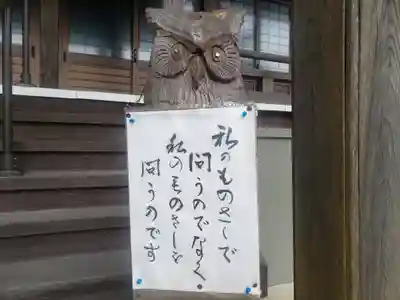 私のものさしで
問うのでなく
私のものさしを
問うのです